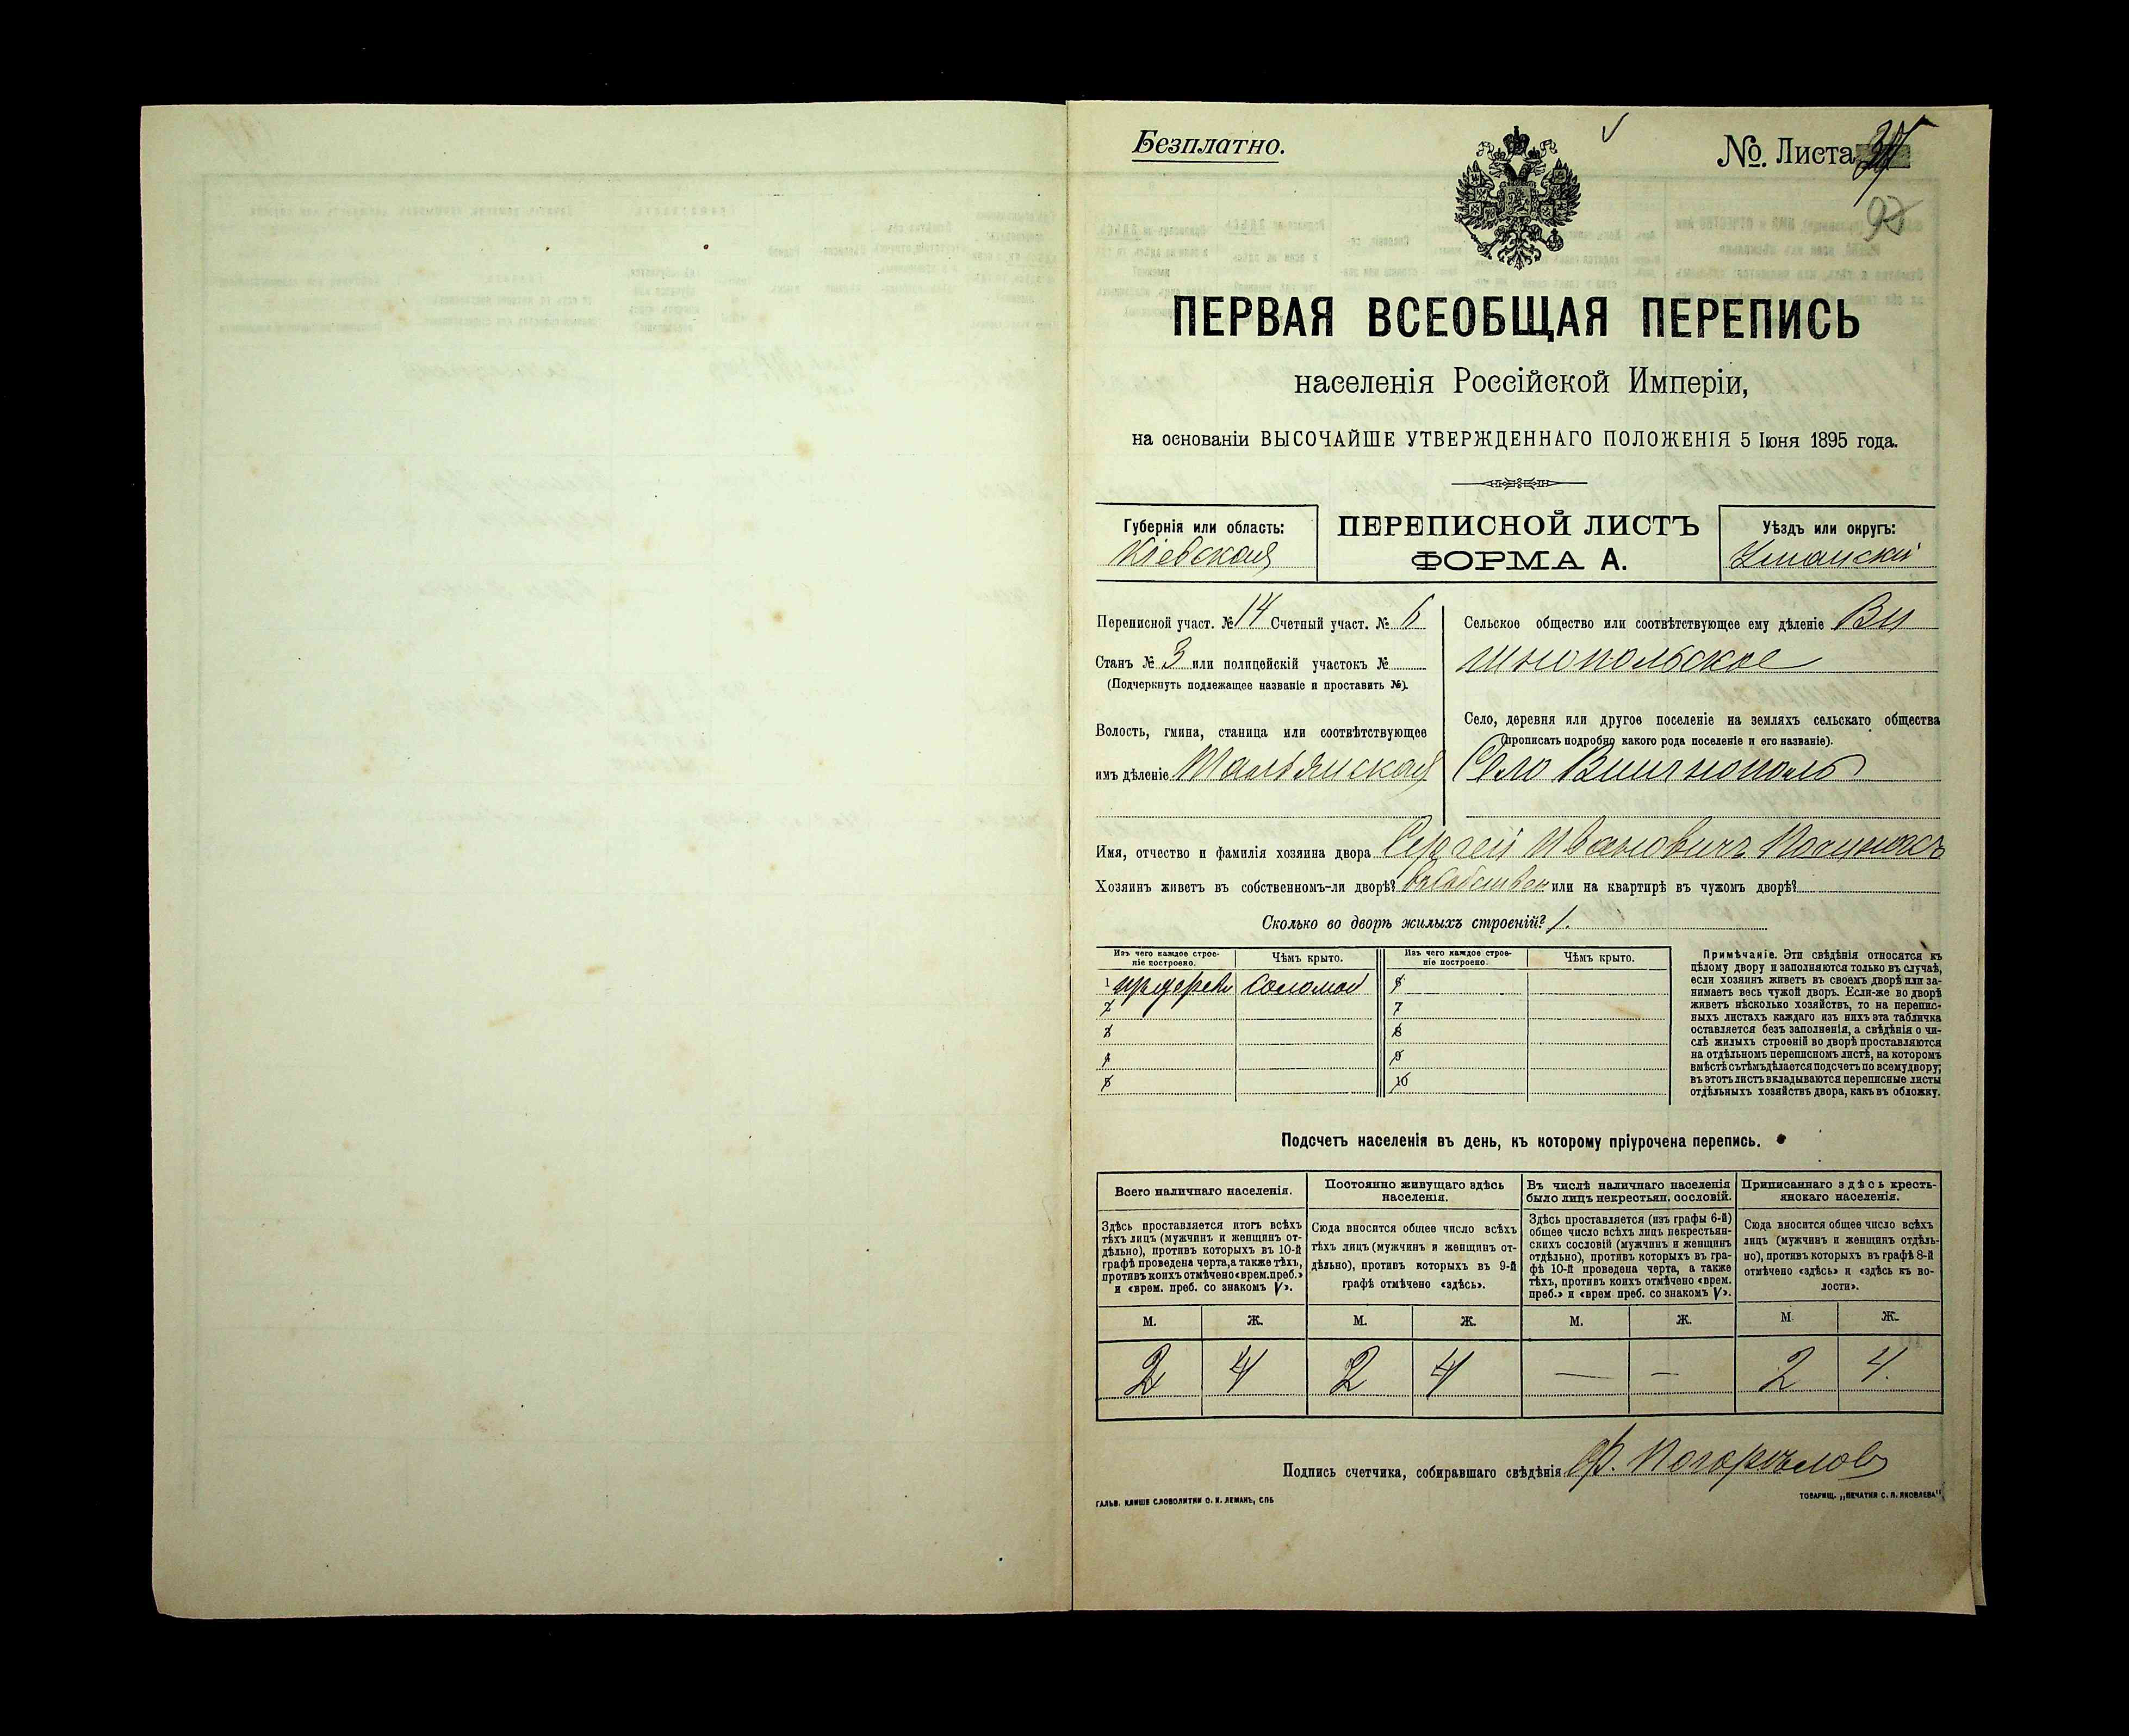 Безплатно.
№. Листа
ПЕРВАЯ ВСЕОБЩАЯ ПЕРЕПИСЬ
населенія Россійской Имперіи,
на основаніи ВЫСОЧАЙШЕ УТВЕРЖДЕННАГО ПОЛОЖЕНІЯ 5 Іюня 1895 года.
Губернія или область:
Кіевская
ПЕРЕПИСНОЙ ЛИСТЪ
ФОРМА А.
Уѣздъ или округъ:
Уманскій
Переписной участ. № 14 Счетный участ. № 6
Станъ № 3 или полицейскій участокъ №
(Подчеркнуть подлежащее названіе и проставить №).
Волость, гмина, станица или соотвѣтствующее
имъ дѣленіе Тальянская
Сельское общество или соотвѣтствующее ему дѣленіе Ви
шнопольское
Село, деревня или другое поселеніе на земляхъ сельскаго общества
(прописать подробно какого рода поселеніе и его названіе).
Село Вишнополь
Имя, отчество и фамилія хозяина двора Сергей Ивановичъ
Хозяинъ живетъ въ собственномъ-ли дворѣ? въ собствен или на квартирѣ въ чужомъ дворѣ?
Сколько во дворѣ жилыхъ строеній? 1.
Изъ чего каждое строе-
ніе построено.
Чѣмъ крыто.
Изъ чего каждое строе-
ніе построено.
Чѣмъ крыто.
1 Соломой 6
2 7
3 8
4 9
5 10
Примѣчаніе. Эти свѣдѣнія относятся къ
цѣлому двору и заполняются только въ случаѣ,
если хозяинъ живетъ въ своемъ дворѣ или за-
нимаетъ весь чужой дворъ. Если-же во дворѣ
живетъ нѣсколько хозяйствъ, то на перепис-
ныхъ листахъ каждаго изъ нихъ эта табличка
оставляется безъ заполненія, а свѣдѣнія о чи-
слѣ жилыхъ строеній во дворѣ проставляются
на отдѣльномъ переписномъ листѣ, на которомъ
вмѣстѣ съ тѣмъ дѣлается подсчетъ по всему двору;
въ этотъ листъ вкладываются переписные листы
отдѣльныхъ хозяйствъ двора, какъ въ обложку.
Подсчетъ населенія въ день, къ которому пріурочена перепись.
Всего наличнаго населенія.
Здѣсь проставляется итогъ всѣхъ
тѣхъ лицъ (мужчинъ и женщинъ от-
дѣльно), противъ которыхъ въ 10-й
графѣ проведена черта, а также тѣхъ,
противъ коихъ отмѣчено «врем. преб.»
и «врем. преб. со знакомъ V».
Постоянно живущаго здѣсь
населенія.
Сюда вносится общее число всѣхъ
тѣхъ лицъ (мужчинъ и женщинъ от-
дѣльно), противъ которыхъ въ 9-й
графѣ отмѣчено «здѣсь».
Въ числѣ наличнаго населенія
было лицъ некрестьян. сословій.
Здѣсь проставляется (изъ графы 6-й)
общее число всѣхъ лицъ некрестьян-
скихъ сословій (мужчинъ и женщинъ
отдѣльно), противъ которыхъ въ гра-
фѣ 10-й проведена черта, а также
тѣхъ, противъ коихъ отмѣчено «врем.
преб.» и «врем преб. со знакомъ V».
Приписаннаго здѣсь кресть-
янскаго населенія.
Сюда вносится общее число всѣхъ
лицъ (мужчинъ и женщинъ отдѣль-
но), противъ которыхъ въ графѣ 8-й
отмѣчено «здѣсь» и «здѣсь къ во-
лости».
М. Ж. М. Ж. М. Ж. М. Ж.
2 4 2 4 — — 2 4.
Подпись счетчика, собиравшаго свѣдѣнія Ф. Погорѣловъ
ГАЛЬВ. КЛИШЕ СЛОВОЛИТНИ О. И. ЛЕМАНЪ, СПБ
ТОВАРИЩ. „ПЕЧАТНЯ С. П. ЯКОВЛЕВА".